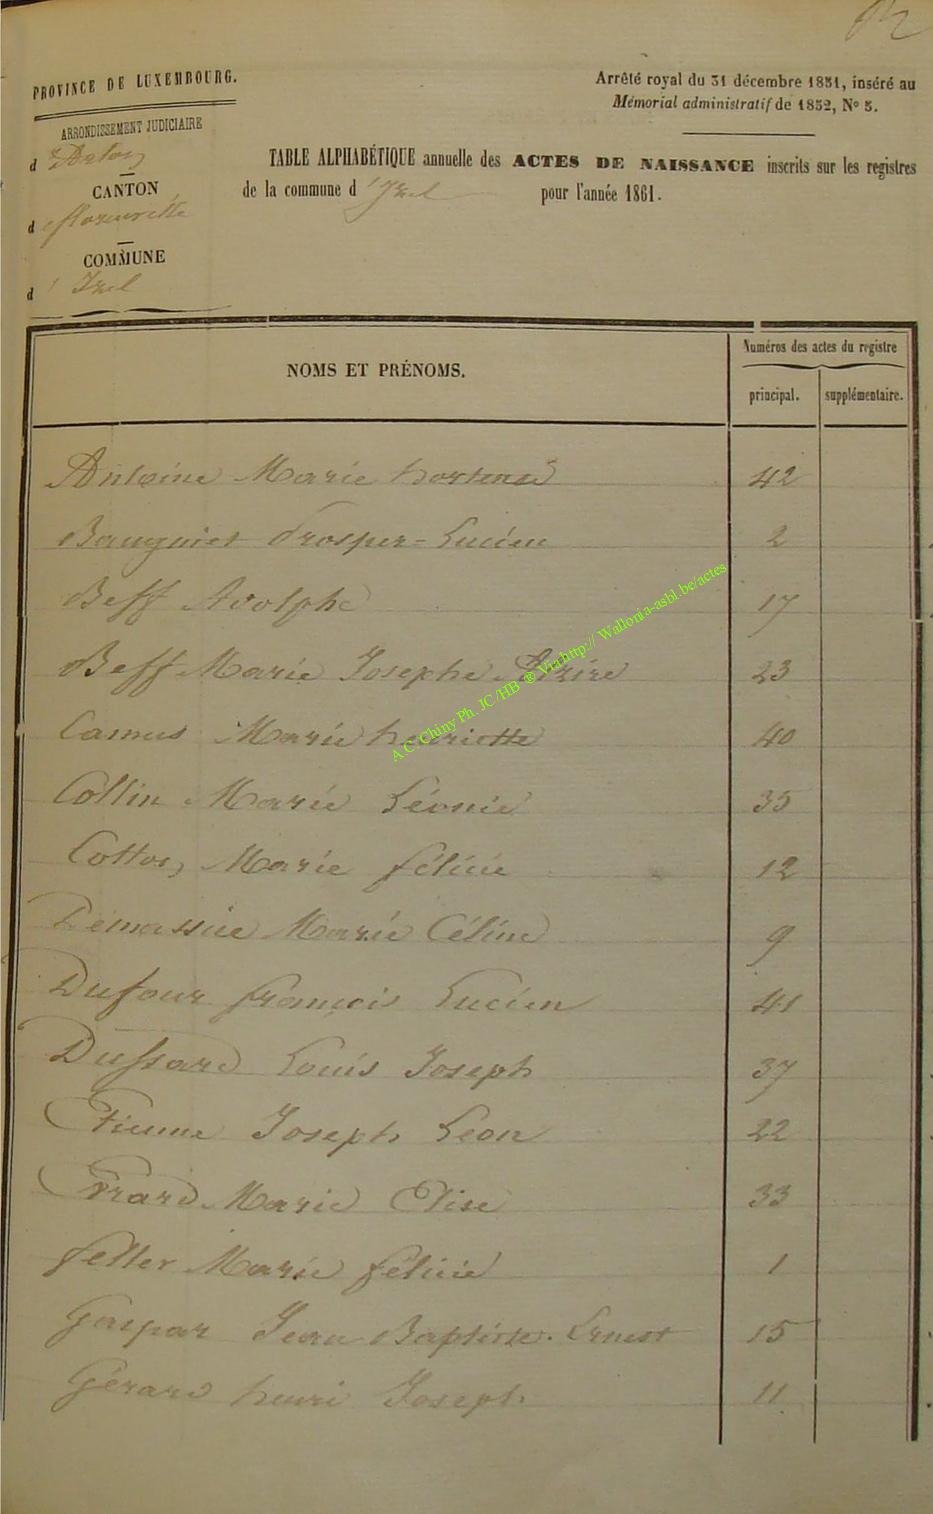 PROVINCE DE LUXEMBOURG.
Arrêté royal du 31 décembre 1851, inséré au
Mémorial administratif de 1852, N° 5.
ARRONDISSEMENT JUDICIAIRE
d'Arlon
CANTON
d
COMMUNE
d'Izel
TABLE ALPHABÉTIQUE annuelle des ACTES DE NAISSANCE inscrits sur les registres
de la commune d'Izel pour l'année 1861.
NOMS ET PRÉNOMS.
Numéros des actes du registre
principal. supplémentaire.
Antoine Marie hortense 42
Bauguiet Prosper-Lucien 2
Beff Adolphe 17
Beff Marie Josephe 23
Camus Marie henriette 40
Collin Marie Léonie 35
Marie félicie 12
Marie Céline 9
Dufour françois Lucien 41
Dussard Louis Joseph 37
Etienne Joseph Léon 22
Evrard Marie Elise 33
feller Marie félicie 1
Gaspar Jean Baptiste. Ernest 15
Gérard henri Joseph 11
A.C. Chiny Ph. JC/HB @ Via http:// Wallonia-asbl.be/actes